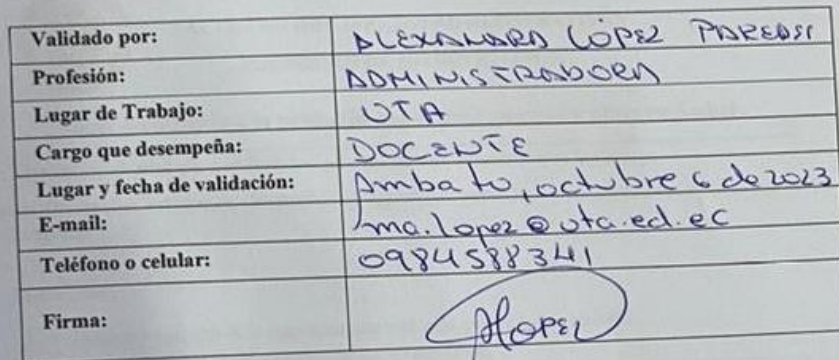 Validado por: ALEXANDRA LÓPEZ PAREDES
Profesión: ADMINISTRADORA
Lugar de Trabajo: UTA
Cargo que desempeña: DOCENTE
Lugar y fecha de validación: Ambato, octubre 6 de 2023
E-mail: ma.lopez@uta.ed.ec
Teléfono o celular: 0984588341
Firma: ALOPEZ